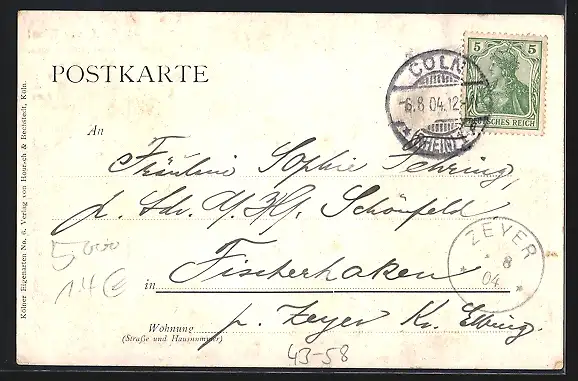 POSTKARTE
CÖLN
-6.8 04.12-1
(RHEIN)
5 5
DEUTSCHES REICH
An
Fräulein Sophie Schring,
p. Adr. Schönfeld
ZEYER
8
04
5000
14€
in Fischerhaken
Wohnung
(Straße und Hausnummer)
p. Zeyer Kr. Elbing.
43-58
Kölner Eigenarten No. 6. Verlag von Hoursch & Bechstedt, Köln.